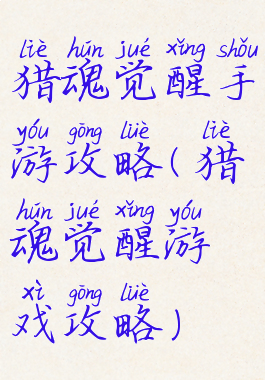 liè hún jué xǐng shǒu
猎魂觉醒手
yóu gōng lüè liè
游攻略(猎
hún jué xǐng yóu
魂觉醒游
xì gōng lüè
戏攻略)